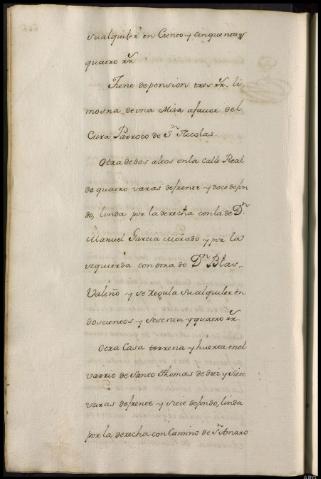 su alquiler en Ciento y cinquenta y
quatro rr.
Tiene de pension tres rr. li
mosna de una Misa a favor del
Cura Parroco de Sn. Nicolas
Otra de dos altos en la calle Real
de quatro varas de frente y doce de fon
do, linda por la derecha con la de Dn.
Manuel Garcia y por la
izquierda con otra de Dn. Blas
Valiño y se regula su alquiler en
doscientos y sesenta y quatro rr.
Otra Casa terrena y huerta en el
varrio de Santo Thomas de diez y siete
varas de frente y siete de fondo, linda
por la derecha con Camino de Sn. Amaro